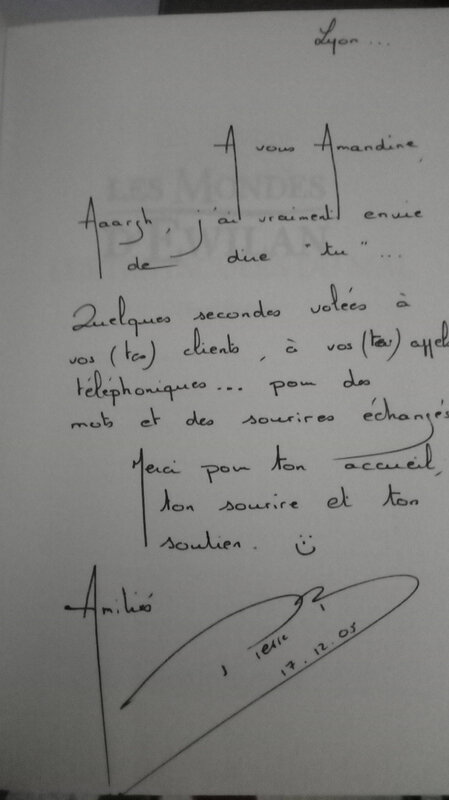 Lyon...
A vous Amandine,
LES MONDES
D'EWILAN
Aaargh, j'ai vraiment envie
de dire "tu"...
Quelques secondes volées à
vos (tes) clients, à vos (tes) appels
téléphoniques... pour des
mots et des sourires échangés
Merci pour ton accueil,
ton sourire et ton
soutien. :)
Amitiés
Pierre
17.12.05